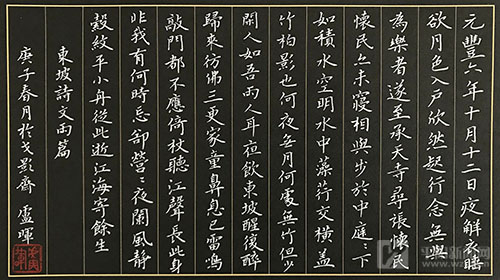 元豐六年十月十二日夜解衣睡
欲月色入戶欣然起行念無與
為樂者遂至承天寺尋張懷民
懷民亦未寢相與步於中庭〻下
如積水空明水中藻荇交橫蓋
竹柏影也何夜無月何處無竹但少
閑人如吾兩人耳夜飲東坡醒復醉
歸來彷彿三更家童鼻息已雷鳴
敲門都不應倚杖聽江聲長此身
非我有何時忘卻營〻夜闌風靜
縠紋平小舟從此逝江海寄餘生
東坡詩文兩篇
庚子春月於戈影齋 盧暉